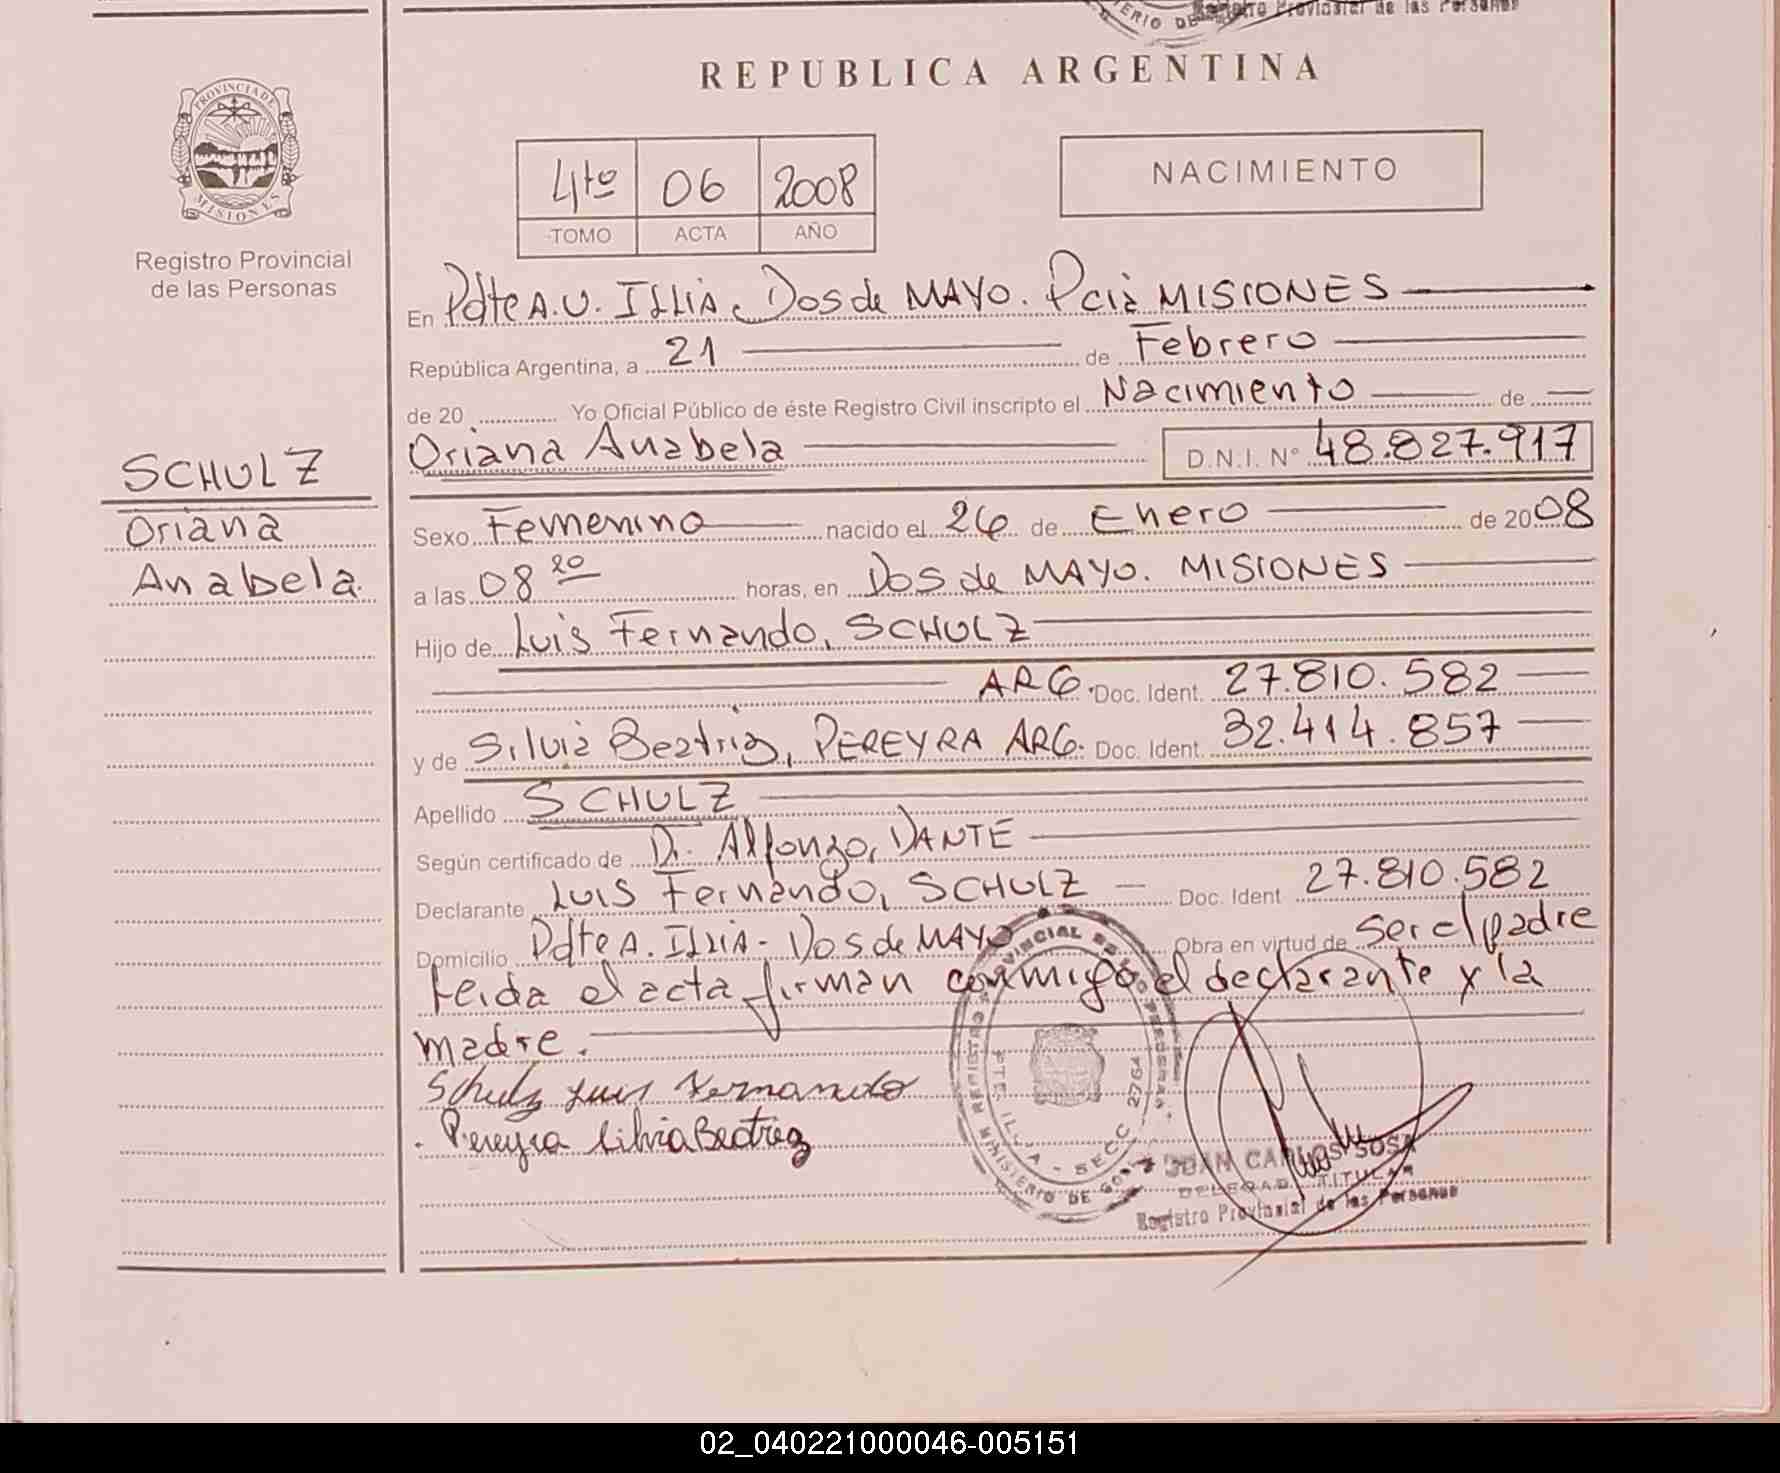 Registro Provincial de las Personas
MINISTERIO DE
REPUBLICA ARGENTINA
PROVINCIA DE
MISIONES
Registro Provincial
de las Personas
4to 06 2008
TOMO ACTA AÑO
NACIMIENTO
En Pdte A.U. ILLIA. Dos de MAYO. Pcia MISIONES
República Argentina, a 21 de Febrero
de 20 Yo Oficial Público de éste Registro Civil inscripto el Nacimiento de
Oriana Anabela D.N.I. N° 48.827.917
SCHULZ
Oriana
Anabela.
Sexo Femenino nacido el 26 de Enero de 2008
a las 08 20 horas, en Dos de MAYO. MISIONES
Hijo de Luis Fernando, SCHULZ
ARG. Doc. Ident. 27.810.582
y de Silvia Beatriz, PEREYRA ARG. Doc. Ident. 32.414.857
Apellido SCHULZ
Según certificado de Dr. Alfonzo, DANTE
Declarante LUIS Fernando, SCHULZ Doc. Ident 27.810.582
Domicilio Pdte A. ILLIA - Dos de MAYO Obra en virtud de ser el padre
Leida el acta firman conmigo el declarante y la
madre.
Schulz Luis Fernando
Pereyra Silvia Beatriz
REGISTRO PROVINCIAL DE LAS PERSONAS
MINISTERIO DE
PTE. ILLIA - SECC. 2764
JUAN CARLOS SOSA
DELEGADO TITULAR
Registro Provincial de las Personas
02_040221000046-005151